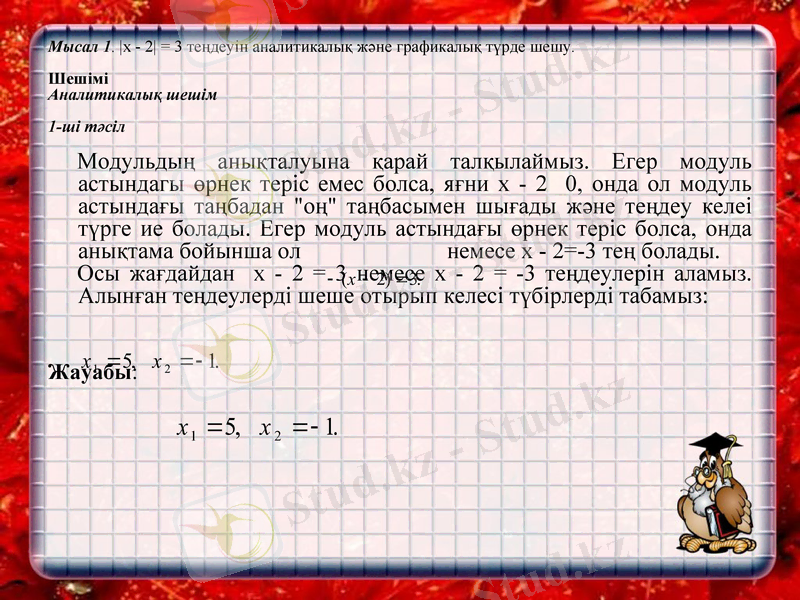 Мысал 1. |x - 2| = 3 теңдеуін аналитикалық және графикалық түрде шешу.
Шешімі
Аналитикалық шешім
1-ші тәсіл
Модульдың анықталуына қарай талқылаймыз. Егер модуль
астындагы өрнек теріс емес болса, яғни x - 2 0, онда ол модуль
астындағы таңбадан "оң" таңбасымен шығады және теңдеу келеі
түрге ие болады. Егер модуль астындағы өрнек теріс болса, онда
анықтама бойынша ол немесе x - 2=-3 тең болады.
Осы жағдайдан x - 2 = 3 немесе x - 2 = -3 теңдеулерін аламыз.
- (x - 2) = 3.
Алынған теңдеулерді шеше отырып келесі түбірлерді табамыз:
x₁ = 5, x₂ = - 1.
Жауабы:
x₁ = 5, x₂ = - 1.
Stud.kz - Stud.kz
Stud.kz - Stud.kz
Stud.kz - Stud.kz
Stud.kz - Stud.kz